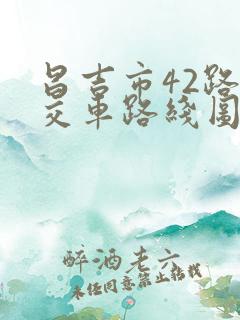 昌吉市42路
交车路线图
醉酒老六
未经同意禁止搬载